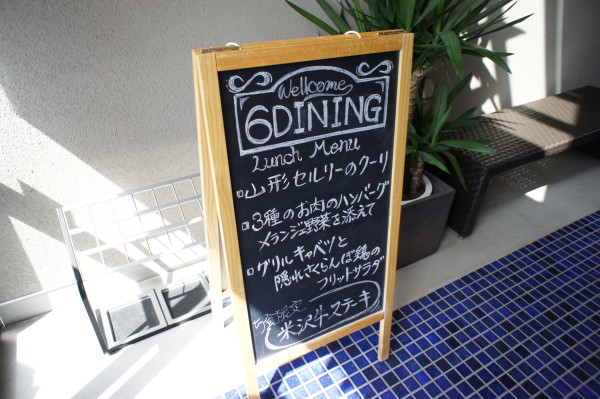 Wellcome
6DINING
Lunch Menu
山形セルリーのクーリ
3種のお肉のハンバーグ
メランジェ野菜を添えて
グリルキャベツと
隠れさくらんぼ鶏の
フリットサラダ
5食限定
米沢牛ステーキ